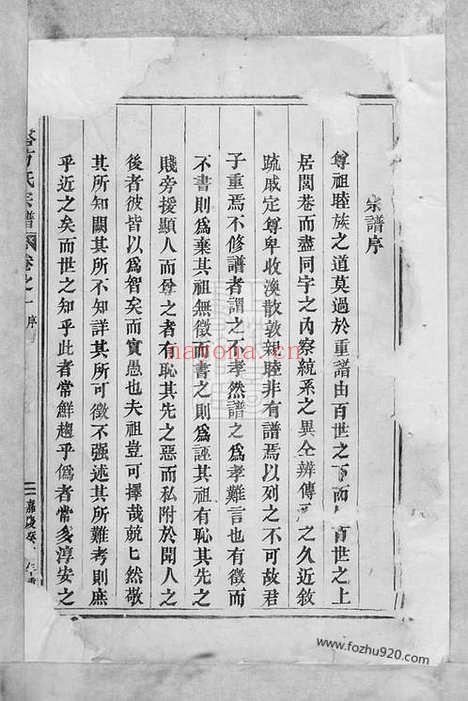 宗譜序
尊祖睦族之道莫過於重譜由百世之下而 百世之上
居閭巷而盡同宇之內察統系之異仝辨傳 之久近敘
疏戚定尊卑收渙散敦親睦非有譜焉以列之不可故君
子重焉不修譜者謂之不孝然譜之爲孝難言也有徵而
不書則爲棄其祖無徵而書之則爲誣其祖有恥其先之
賤旁援顯人而尊之者有恥其先之惡而私附於聞人之
後者彼皆以爲智矣而實愚也夫祖豈可擇哉兢兢然敬
其所知闕其所不知詳其所可徵不强述其所難考則庶
乎近之矣而世之知乎此者常鮮趨乎僞者常多淳安之
方氏宗譜 卷之一 序
嘉慶
navona.cn
www.fozhu920.com